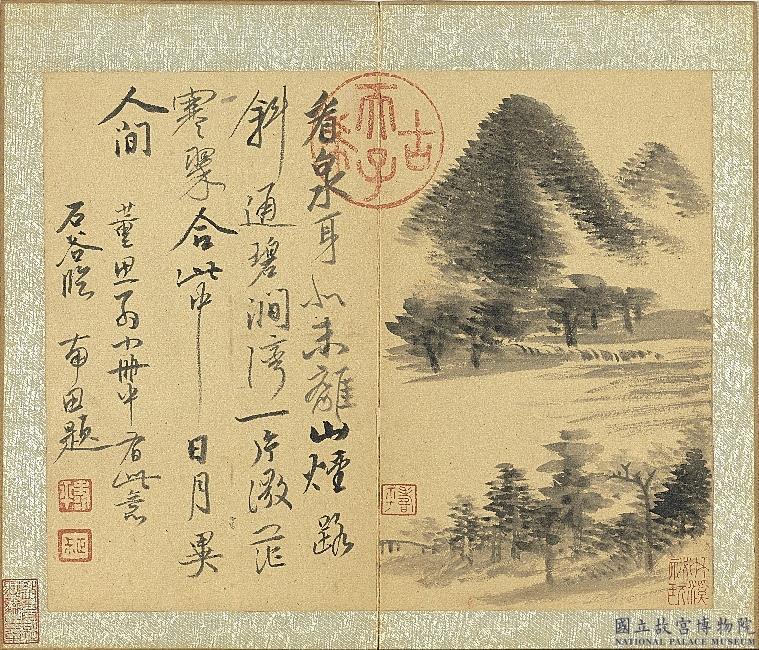 看泉身似未離山煙路
斜通碧澗灣一片微茫
寒翠合此中日月異
人間
董思翁小冊中有此意
石谷臨 南田題
古希天子
壽平
國立故宮博物院
NATIONAL PALACE MUSEUM